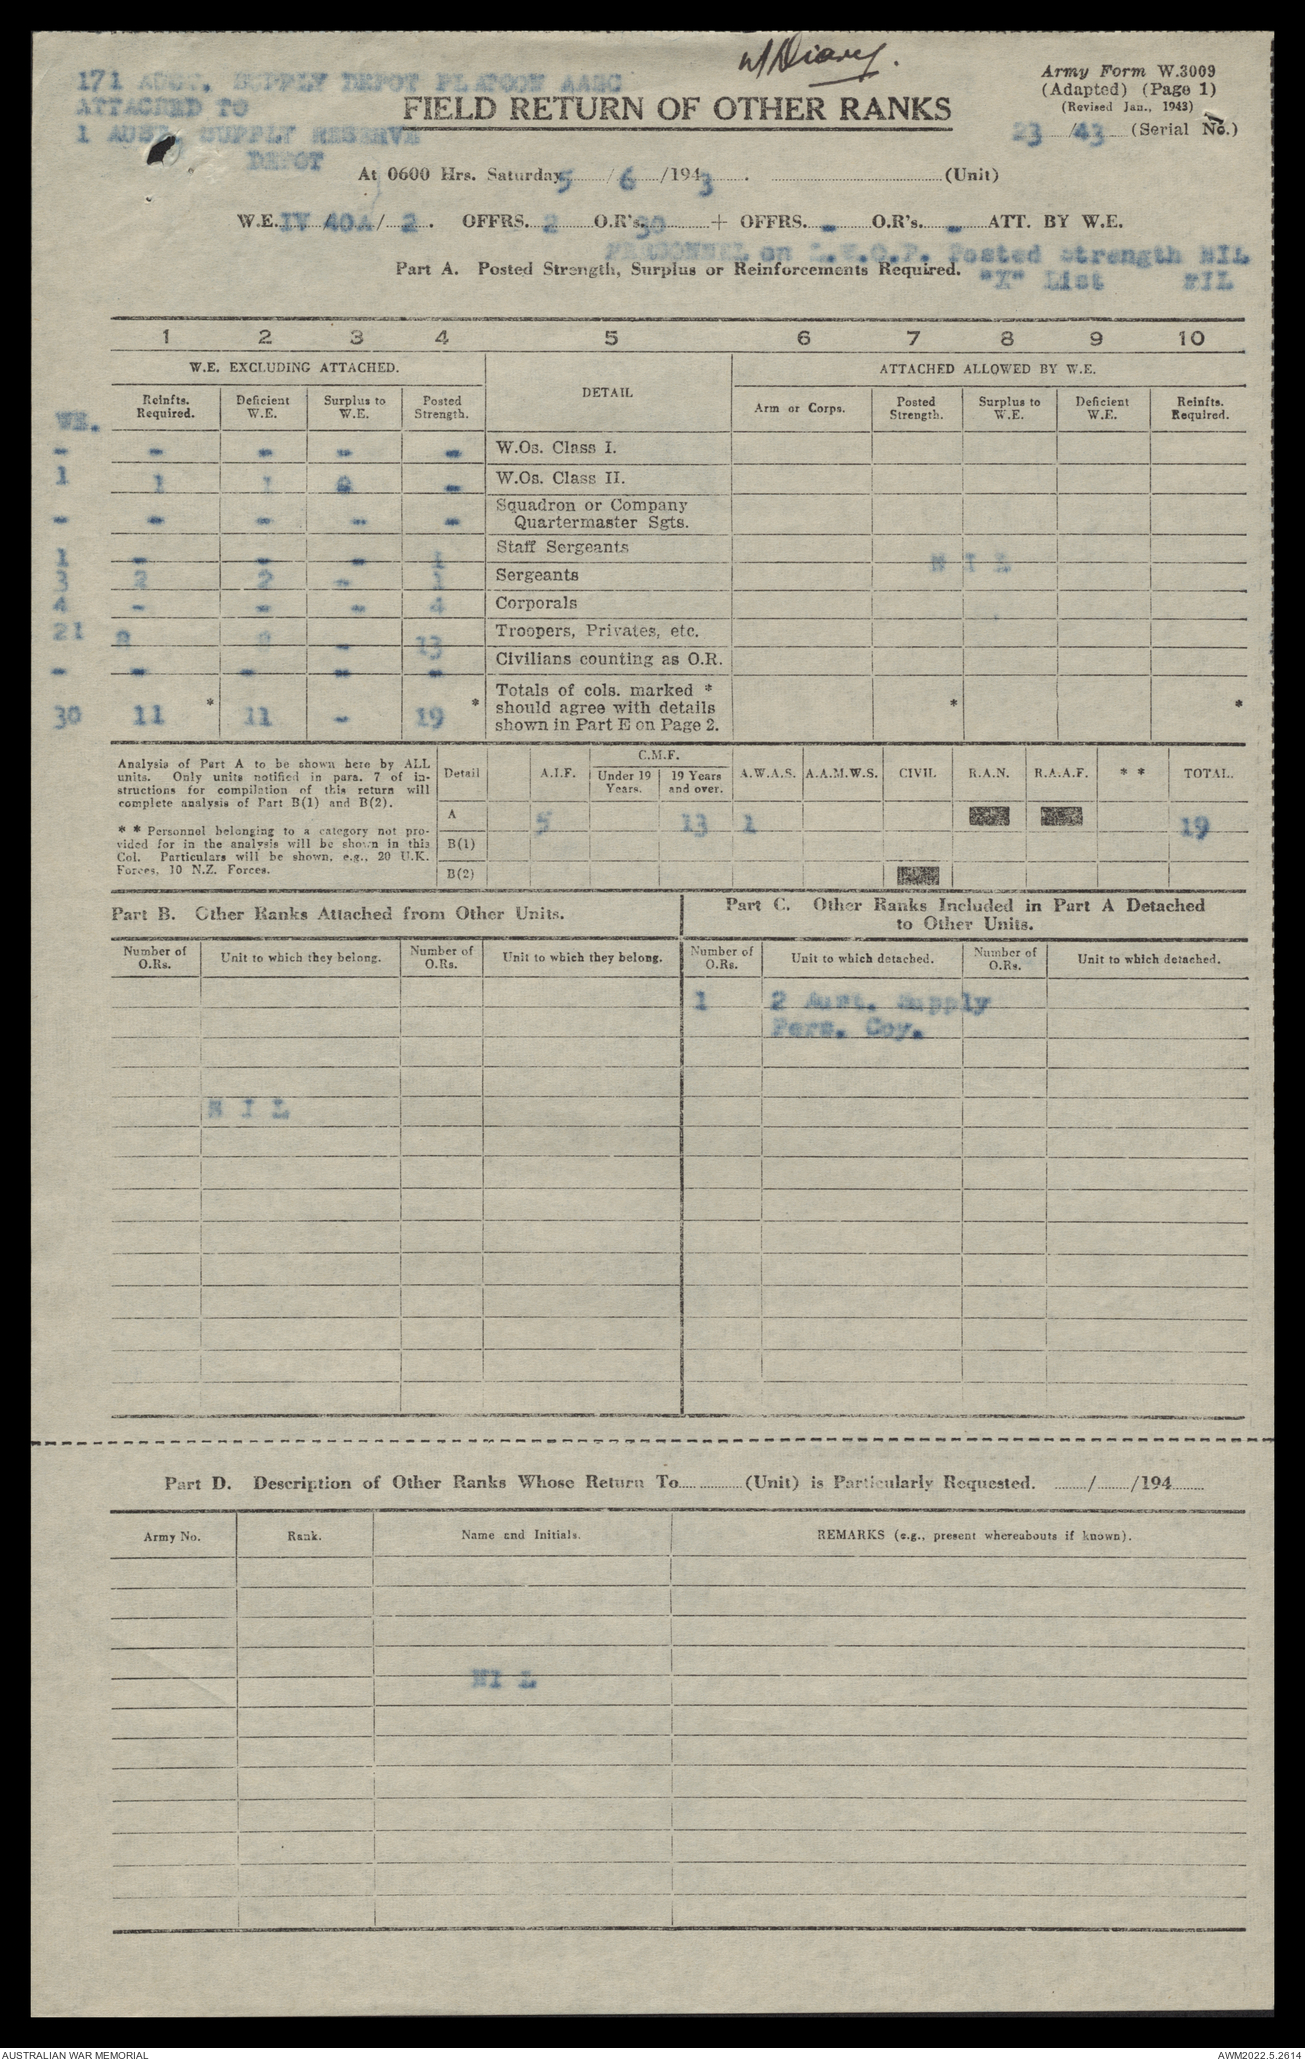 W/Diary.
171 AUST. SUPPLY DEPOT PLATOON AASC
ATTACHED TO
1 AUST. SUPPLY RESERVE
DEPOT
Army Form W.3009
(Adapted) (Page 1)
(Revised Jan., 1943)
23/43 (Serial No.)
FIELD RETURN OF OTHER RANKS
At 0600 Hrs. Saturday 5/6/1943. (Unit)
W.E. IV 40A/2. OFFRS. 2 O.R's. 30 + OFFRS. - O.R's. - ATT. BY W.E.
PERSONNEL on L.W.O.P. Posted strength NIL
"X" List NIL
Part A. Posted Strength, Surplus or Reinforcements Required.
1 2 3 4 5 6 7 8 9 10
W.E. EXCLUDING ATTACHED. DETAIL ATTACHED ALLOWED BY W.E.
WE. Reinfts. Required. Deficient W.E. Surplus to W.E. Posted Strength. Arm or Corps. Posted Strength. Surplus to W.E. Deficient W.E. Reinfts. Required.
- - - - - W.Os. Class I.
1 1 1 - - W.Os. Class II.
- - - - - Squadron or Company
Quartermaster Sgts.
1 - - - 1 Staff Sergeants
N I L
3 2 2 - 1 Sergeants
4 - - - 4 Corporals
21 8 8 - 13 Troopers, Privates, etc.
- - - - - Civilians counting as O.R.
30 11 * 11 - 19 * Totals of cols. marked *
should agree with details
shown in Part E on Page 2. * *
Analysis of Part A to be shown here by ALL
units. Only units notified in para. 7 of in-
structions for compilation of this return will
complete analysis of Part B(1) and B(2).
* * Personnel belonging to a category not pro-
vided for in the analysis will be shown in this
Col. Particulars will be shown, e.g., 20 U.K.
Forces, 10 N.Z. Forces.
C.M.F.
Detail A.I.F. Under 19 Years. 19 Years and over. A.W.A.S. A.A.M.W.S. CIVIL R.A.N. R.A.A.F. * * TOTAL.
A 5 13 1 19
B(1)
B(2)
Part B. Other Ranks Attached from Other Units.
Part C. Other Ranks Included in Part A Detached
to Other Units.
Number of O.Rs. Unit to which they belong. Number of O.Rs. Unit to which they belong. Number of O.Rs. Unit to which detached. Number of O.Rs. Unit to which detached.
1 2 Aust. Supply
Pers. Coy.
N I L
Part D. Description of Other Ranks Whose Return To............(Unit) is Particularly Requested. ......./......./194.......
Army No. Rank. Name and Initials. REMARKS (e.g., present whereabouts if known).
NI L
AUSTRALIAN WAR MEMORIAL
AWM2022.5.2614